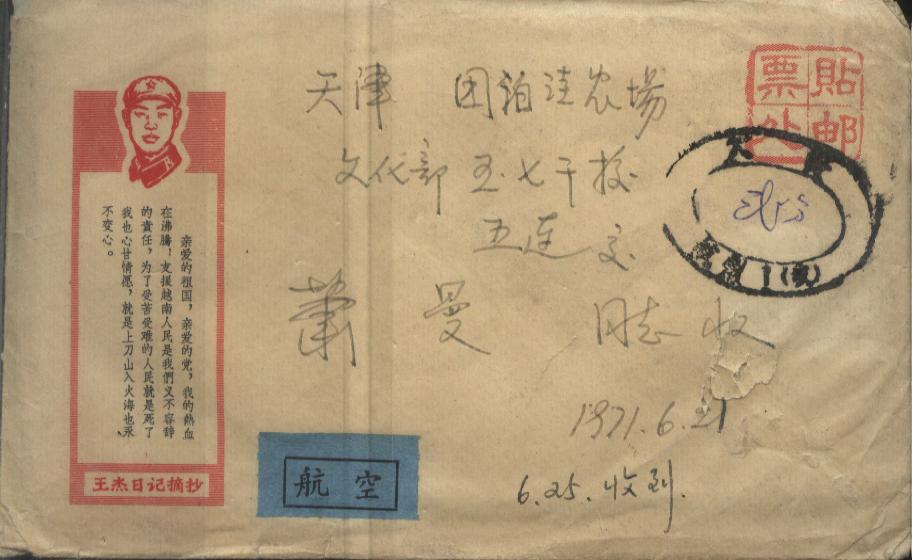 天津 团泊洼农場
文化部五七干校
五连交
萧曼 同志收
1971.6.21
6.25.收到.
贴邮
票处
亲爱的祖国，亲爱的党，我的熱血
在沸腾！支援越南人民是我們义不容辞
的責任，为了受苦受难的人民就是死了
我也心甘情愿，就是上刀山入火海也永
不变心。
王杰日记摘抄
航空